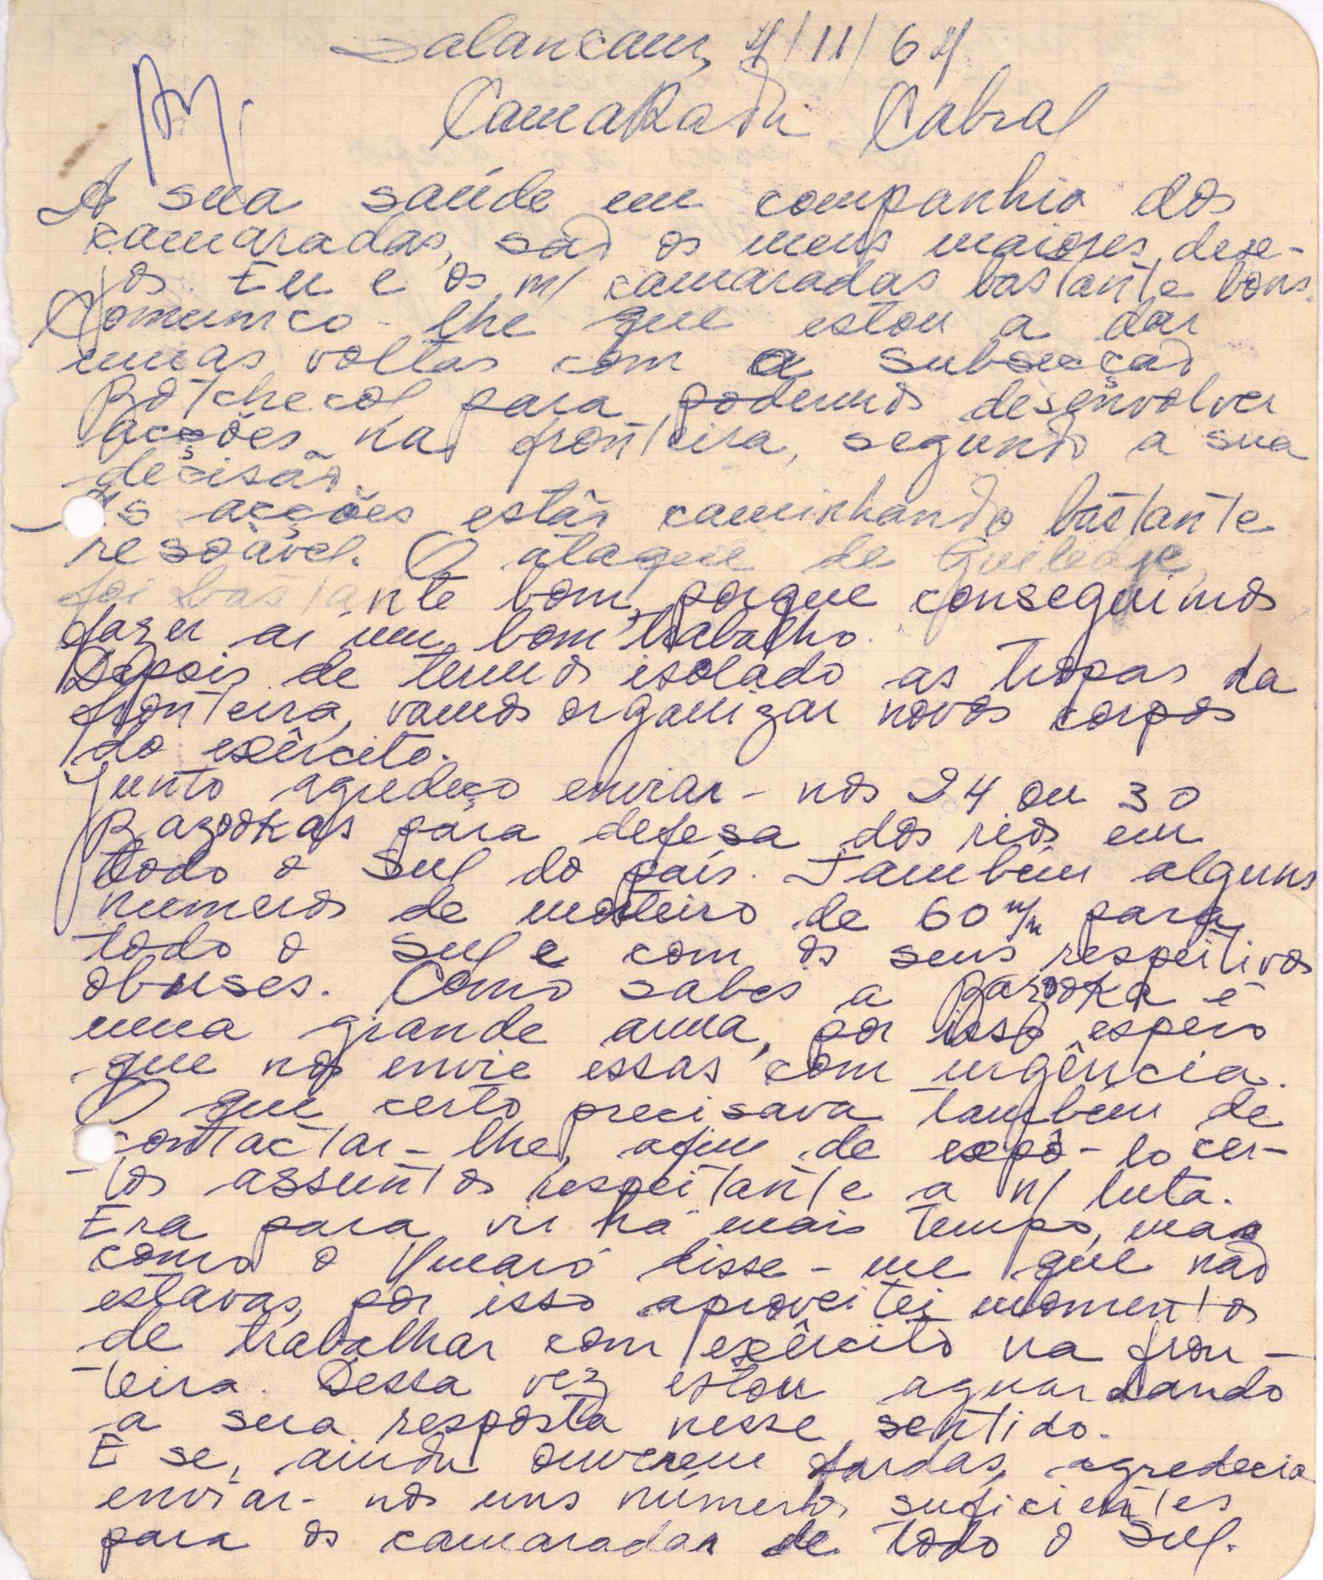 Salancaur, 4/11/64
Camarada Cabral
A sua saúde em companhia dos
camaradas, são os meus maiores dese-
jos. Eu e os m/ camaradas bastante bons.
Comunico-lhe que estou a dar
umas voltas com a subsecção
Botchecol para podermos desenvolver
acções na fronteira, segundo a sua
decisão.
As acções estão caminhando bastante
resoável. O ataque de Guiledje
foi bastante bom, porque conseguimos
fazer aí um bom trabalho.
Depois de termos isolado as tropas da
fronteira, vamos organizar novos corpos
do exército.
Junto agredeço enviar-nos 24 ou 30
Bazookas para defesa dos rios em
todo o Sul do país. Também alguns
numeros de morteiro de 60 m/m para
todo o Sul e com os seus respeitivos
obuses. Como sabes a Bazooka é
uma grande arma, por isso espero
que nos envie essas com urgência.
O que certo precisava também de
contactar-lhe, afim de expô-lo cer-
tos assuntos respeitante a n/ luta.
Era para vir há mais tempo, mas
como o Umaró disse-me que não
estavas, por isso aproveitei momentos
de trabalhar com exército na fron-
teira. Dessa vez estou aguardando
a sua resposta nesse sentido.
E se, ainda ouverem fardas, agredecia
enviar-nos uns números suficientes
para os camaradas de todo o Sul.